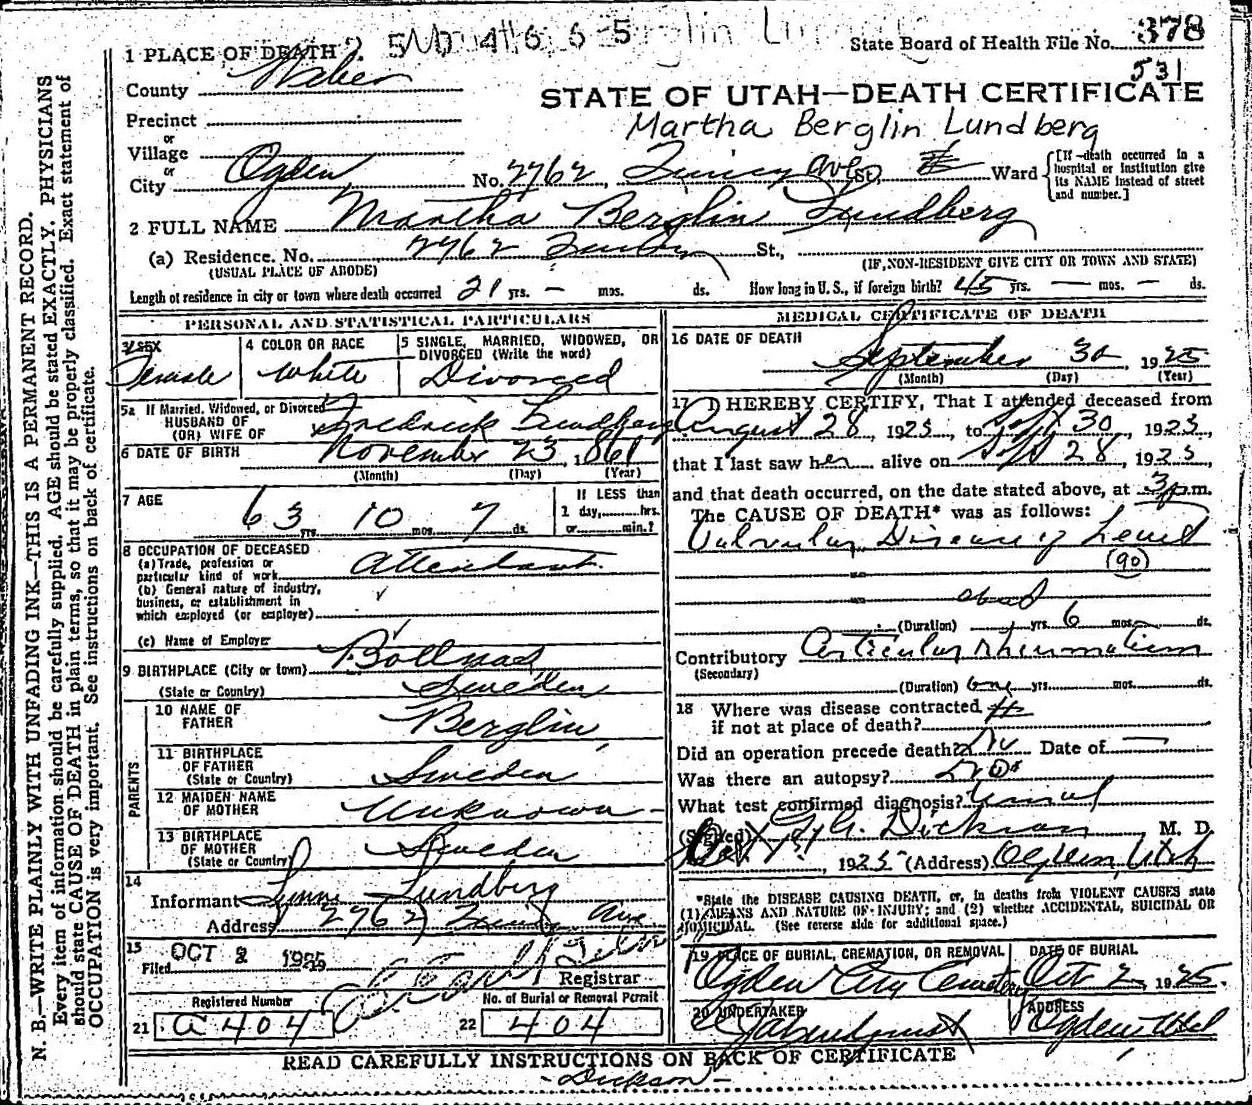 State Board of Health File No. 378
531
1 PLACE OF DEATH
County Weber
STATE OF UTAH—DEATH CERTIFICATE
Precinct
Martha Berglin Lundberg
or
Village
or
City Ogden No. 2762 Quincy Ave St, Ward
[If death occurred in a hospital or institution give its NAME instead of street and number.]
2 FULL NAME Martha Berglin Lundberg
(a) Residence. No. 2762 Quincy St.,
(USUAL PLACE OF ABODE) (IF NON-RESIDENT GIVE CITY OR TOWN AND STATE)
Length of residence in city or town where death occurred 21 yrs. — mos. ds. How long in U.S., if foreign birth? 45 yrs. — mos. — ds.
PERSONAL AND STATISTICAL PARTICULARS
3 SEX
Female
4 COLOR OR RACE
White
5 SINGLE, MARRIED, WIDOWED, OR DIVORCED (Write the word)
Divorced
5a If Married, Widowed, or Divorced
HUSBAND OF
(OR) WIFE OF Fredrick Lundberg
6 DATE OF BIRTH November 23, 1861
(Month) (Day) (Year)
7 AGE
63 yrs. 10 mos. 7 ds.
If LESS than
1 day, hrs.
or min.?
8 OCCUPATION OF DECEASED
(a) Trade, profession or
particular kind of work Attendant
(b) General nature of industry,
business, or establishment in
which employed (or employer)
(c) Name of Employer
9 BIRTHPLACE (City or town) Bollnas
(State or Country) Sweden
PARENTS
10 NAME OF FATHER Berglin
11 BIRTHPLACE OF FATHER
(State or Country) Sweden
12 MAIDEN NAME OF MOTHER Unknown
13 BIRTHPLACE OF MOTHER
(State or Country) Sweden
14
Informant Lundberg
Address 2762 Quincy Ave
15
Filed OCT 2 1925
Registrar
Registered Number
21 a 404
No. of Burial or Removal Permit
22 404
MEDICAL CERTIFICATE OF DEATH
16 DATE OF DEATH
September 30, 1925
(Month) (Day) (Year)
17 I HEREBY CERTIFY, That I attended deceased from
August 28, 1925, to Sept 30, 1925,
that I last saw her alive on Sept 28, 1925,
and that death occurred, on the date stated above, at 3 p.m.
The CAUSE OF DEATH* was as follows:
Valvular Disease of Heart
(90)
about
(Duration) yrs. 6 mos. ds.
Contributory Articular Rheumatism
(Secondary)
(Duration) yrs. mos. ds.
18 Where was disease contracted
if not at place of death?
Did an operation precede death? No Date of —
Was there an autopsy? No
What test confirmed diagnosis? Usual
(Signed) Dickson M. D.
1925 (Address) Ogden, Utah
*State the DISEASE CAUSING DEATH, or, in deaths from VIOLENT CAUSES state
(1) MEANS AND NATURE OF INJURY; and (2) whether ACCIDENTAL, SUICIDAL OR
HOMICIDAL. (See reverse side for additional space.)
19 PLACE OF BURIAL, CREMATION, OR REMOVAL
Ogden City Cemetery
DATE OF BURIAL
Oct 2 1925.
20 UNDERTAKER
ADDRESS
Ogden Utah
READ CAREFULLY INSTRUCTIONS ON BACK OF CERTIFICATE
- Dickson -
N. B.—WRITE PLAINLY WITH UNFADING INK—THIS IS A PERMANENT RECORD.
Every item of information should be carefully supplied. AGE should be stated EXACTLY. PHYSICIANS
should state CAUSE OF DEATH in plain terms, so that it may be properly classified. Exact statement of
OCCUPATION is very important. See instructions on back of certificate.